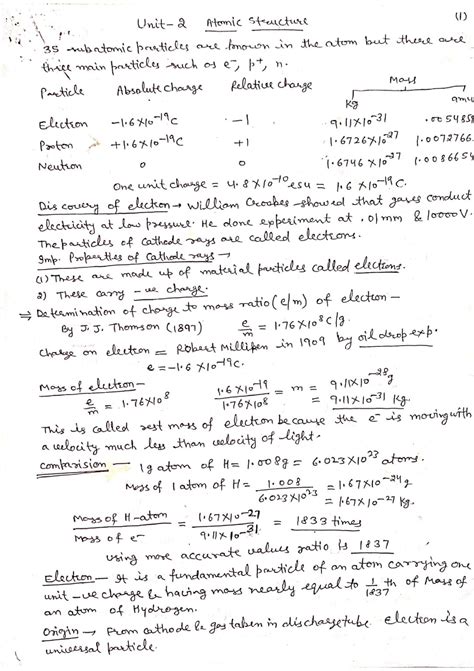 Unit-2 Atomic Structure (1)
35 subatomic particles are known in the atom but there are
three main particles such as e⁻, p⁺, n.
Particle Absolute charge Relative charge Mass
Kg amu
Electron -1.6X10⁻¹⁹C -1 9.11X10⁻³¹ .005485
Proton +1.6X10⁻¹⁹C +1 1.6726X10⁻²⁷ 1.0072766
Neutron 0 0 1.6746X10⁻²⁷ 1.0086654
One unit charge = 4.8X10⁻¹⁰esu = 1.6 X10⁻¹⁹C.
Discovery of electron → William Crookes showed that gases conduct
electricity at low pressure. He done experiment at .01mm & 10000V.
The particles of cathode rays are called electrons.
Imp. Properties of Cathode rays →
(1) These are made up of material particles called electrons.
2) These carry -ve charge.
⇒ Determination of charge to mass ratio (e/m) of electron —
By J.J. Thomson (1897) e/m = 1.76X10⁸ C/g.
Charge on electron = Robert Milliken in 1909 by oil drop exp.
e = -1.6 X10⁻¹⁹C.
Mass of electron —
e/m = 1.76X10⁸ 1.6X10⁻¹⁹/1.76X10⁸ = m = 9.11X10⁻²⁸g
= 9.11X10⁻³¹ Kg.
This is called rest mass of electron because the e⁻ is moving with
a velocity much less than velocity of light.
comparision — 1g atom of H = 1.008g = 6.023X10²³ atoms.
Mass of 1 atom of H = 1.008/6.023X10²³ = 1.67X10⁻²⁴g
= 1.67X10⁻²⁷ Kg.
Mass of H-atom/Mass of e⁻ = 1.67X10⁻²⁷/9.11X10⁻³¹ = 1833 times
using more accurate values ratio is 1837
Electron — It is a fundamental particle of an atom carrying one
unit -ve charge & having mass nearly equal to 1/1837 th of Mass of
an atom of Hydrogen.
Origin → From cathode & gas taken in discharge tube. electron is a
universal particle.